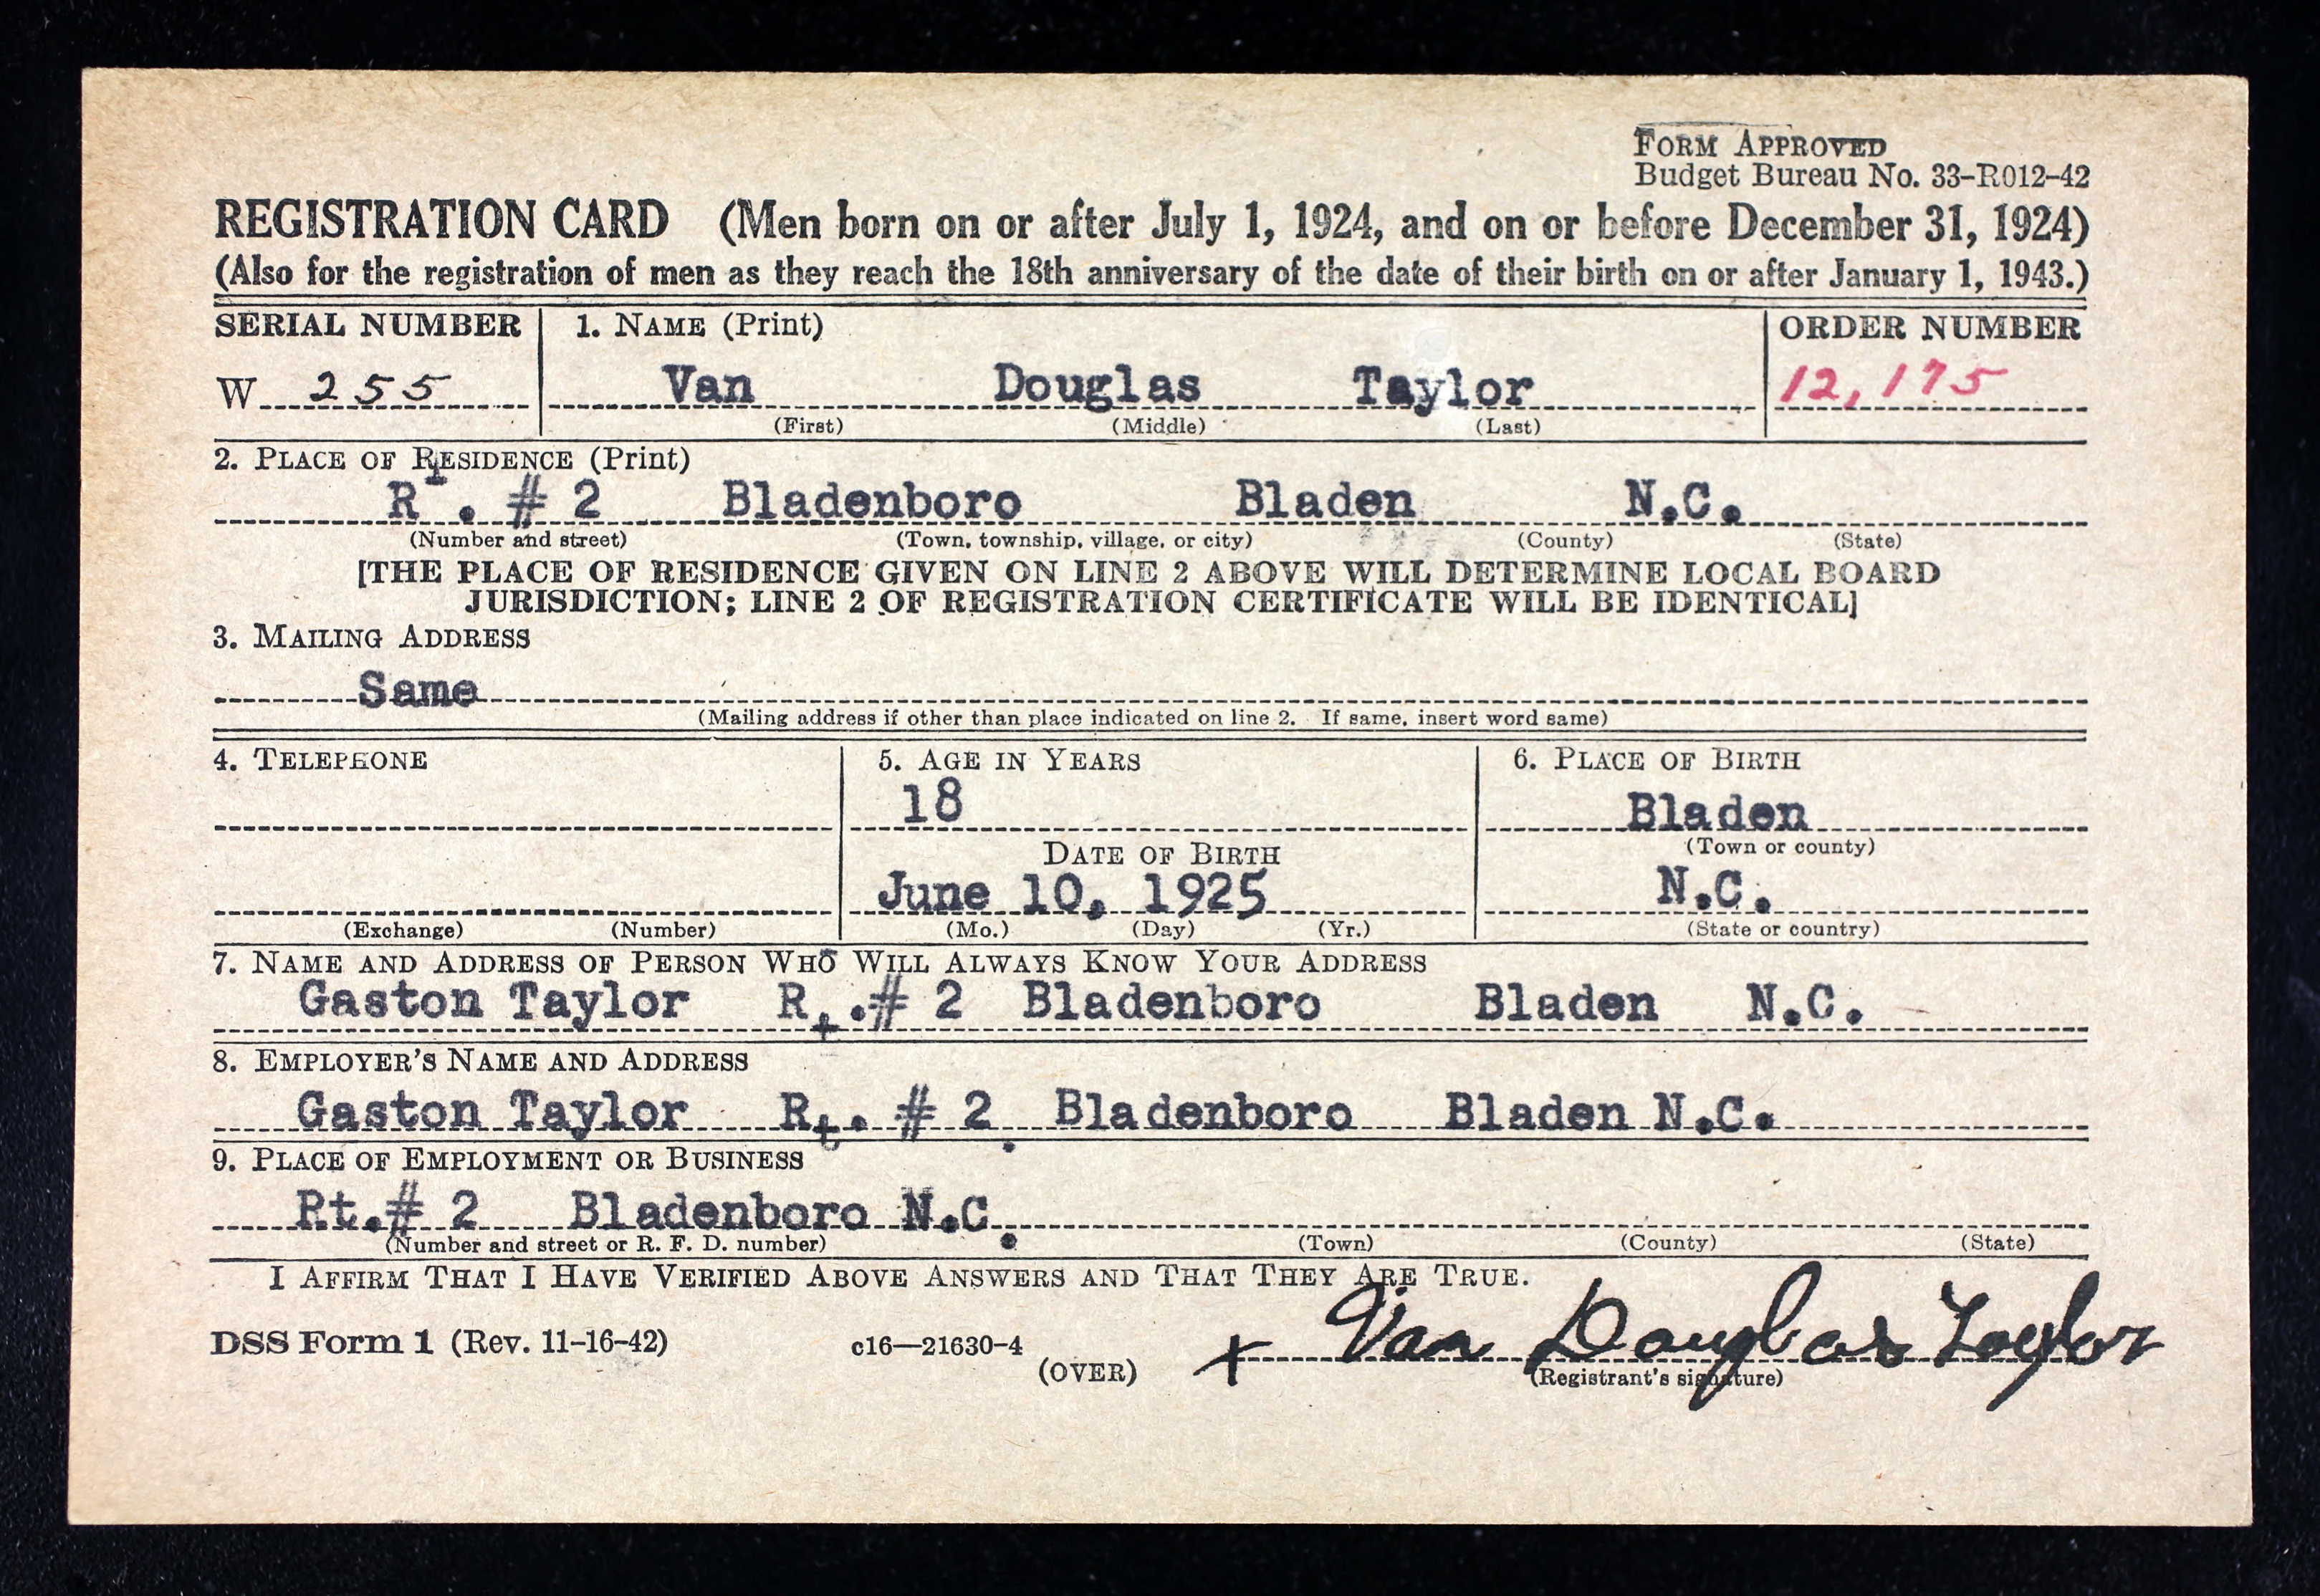 FORM APPROVED
Budget Bureau No. 33-R012-42
REGISTRATION CARD (Men born on or after July 1, 1924, and on or before December 31, 1924)
(Also for the registration of men as they reach the 18th anniversary of the date of their birth on or after January 1, 1943.)
SERIAL NUMBER 1. NAME (Print) ORDER NUMBER
W 255 Van Douglas Taylor 12,175
(First) (Middle) (Last)
2. PLACE OF RESIDENCE (Print)
Rt. # 2 Bladenboro Bladen N.C.
(Number and street) (Town, township, village, or city) (County) (State)
[THE PLACE OF RESIDENCE GIVEN ON LINE 2 ABOVE WILL DETERMINE LOCAL BOARD
JURISDICTION; LINE 2 OF REGISTRATION CERTIFICATE WILL BE IDENTICAL]
3. MAILING ADDRESS
Same
(Mailing address if other than place indicated on line 2. If same, insert word same)
4. TELEPHONE 5. AGE IN YEARS 6. PLACE OF BIRTH
18 Bladen
DATE OF BIRTH (Town or county)
June 10, 1925 N.C.
(Exchange) (Number) (Mo.) (Day) (Yr.) (State or country)
7. NAME AND ADDRESS OF PERSON WHO WILL ALWAYS KNOW YOUR ADDRESS
Gaston Taylor Rt.# 2 Bladenboro Bladen N.C.
8. EMPLOYER'S NAME AND ADDRESS
Gaston Taylor Rt. # 2 Bladenboro Bladen N.C.
9. PLACE OF EMPLOYMENT OR BUSINESS
Rt.# 2 Bladenboro N.C.
(Number and street or R. F. D. number) (Town) (County) (State)
I AFFIRM THAT I HAVE VERIFIED ABOVE ANSWERS AND THAT THEY ARE TRUE.
DSS Form 1 (Rev. 11-16-42) c16—21630-4 x Van Douglas Taylor
(OVER) (Registrant's signature)